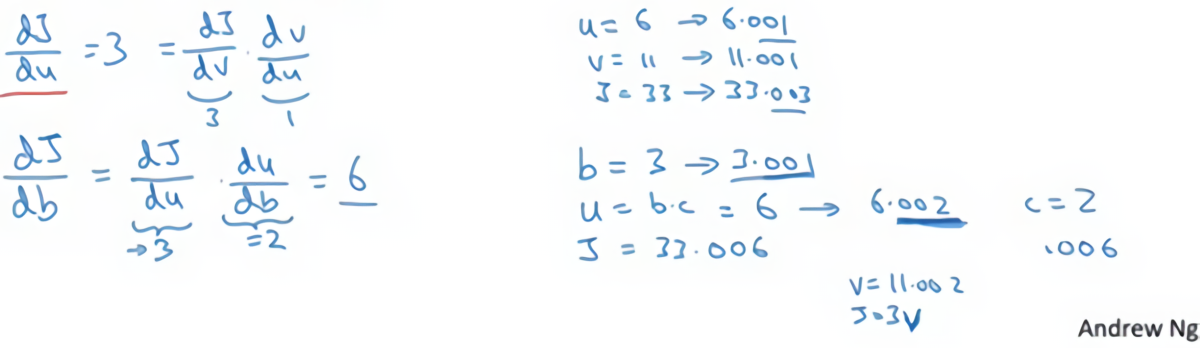 dJ/du = 3 = dJ/dv · dv/du
3 1
dJ/db = dJ/du · du/db = 6
→3 =2
u = 6 → 6.001
v = 11 → 11.001
J = 33 → 33.003
b = 3 → 3.001
u = b·c = 6 → 6.002 c = 2
J = 33.006 .006
v = 11.002
J = 3v
Andrew Ng